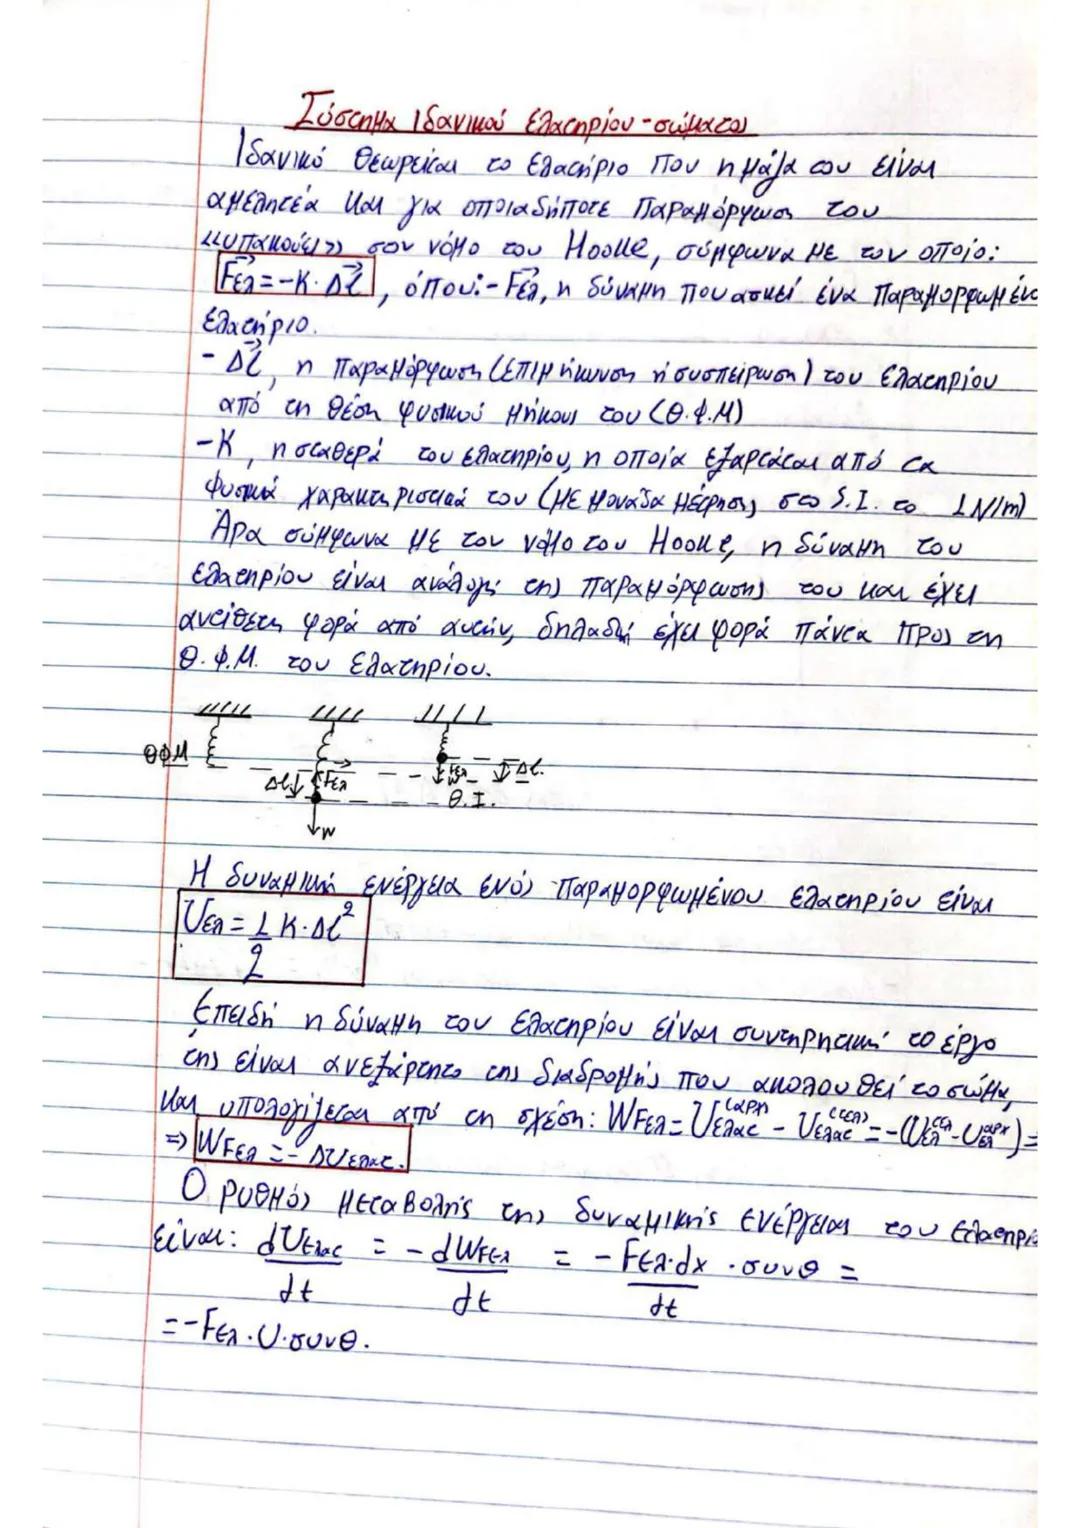 Σύστημα Ιδανικού Ελατηρίου - σώματος
Ιδανικό θεωρείται το Ελατήριο που η μάζα του είναι
αμελητέα και για οποιαδήποτε παραμόρφωση του
<<υπακούει>> στον νόμο του Hooke, σύμφωνα με τον οποίο:
Fελ = -K · Δl , όπου: - Fελ, η δύναμη που ασκεί ένα παραμορφωμένο
Ελατήριο.
- Δl, η παραμόρφωση (Επιμήκυνση ή συσπείρωση) του Ελατηρίου
από τη θέση φυσικού μήκους του (Θ.Φ.Μ)
- K, η σταθερά του ελατηρίου, η οποία εξαρτάται από τα
φυσικά χαρακτηριστικά του (με μονάδα μέτρησης στο S.I. το 1N/m)
Άρα σύμφωνα με τον νόμο του Hooke, η δύναμη του
ελατηρίου είναι ανάλογη της παραμόρφωσης του και έχει
αντίθετη φορά από αυτήν, δηλαδή έχει φορά πάντα προς τη
Θ.Φ.Μ. του Ελατηρίου.
ΘΦΜ Δl Fελ Fελ Δl.
Θ.Ι.
W
Η δυναμική ενέργεια ενός παραμορφωμένου ελατηρίου είναι
Uελ = 1/2 K·Δl²
Επειδή η δύναμη του Ελατηρίου είναι συντηρητική το έργο
της είναι ανεξάρτητο της διαδρομής που ακολουθεί το σώμα,
και υπολογίζεται από τη σχέση: WFελ = Uελατ(αρχ) - Uελατ(τελ) = -(Uελτελ - Uελαρχ) =
=> WFελ = - ΔUελατ.
Ο ρυθμός μεταβολής της δυναμικής ενέργειας του ελατηρίο
είναι: dUελατ/dt = - dWFελ/dt = - Fελ·dx/dt · συνθ =
= - Fελ · υ · συνθ.